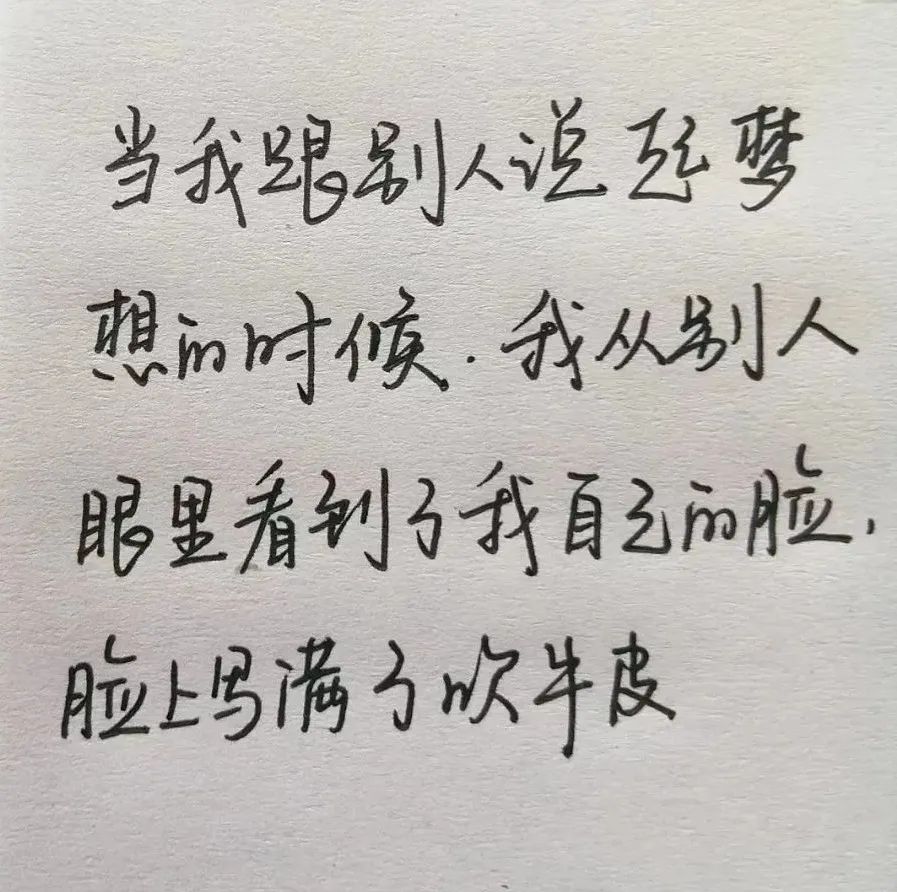 当我跟别人说起梦
想的时候.我从别人
眼里看到了我自己的脸,
脸上写满了吹牛皮